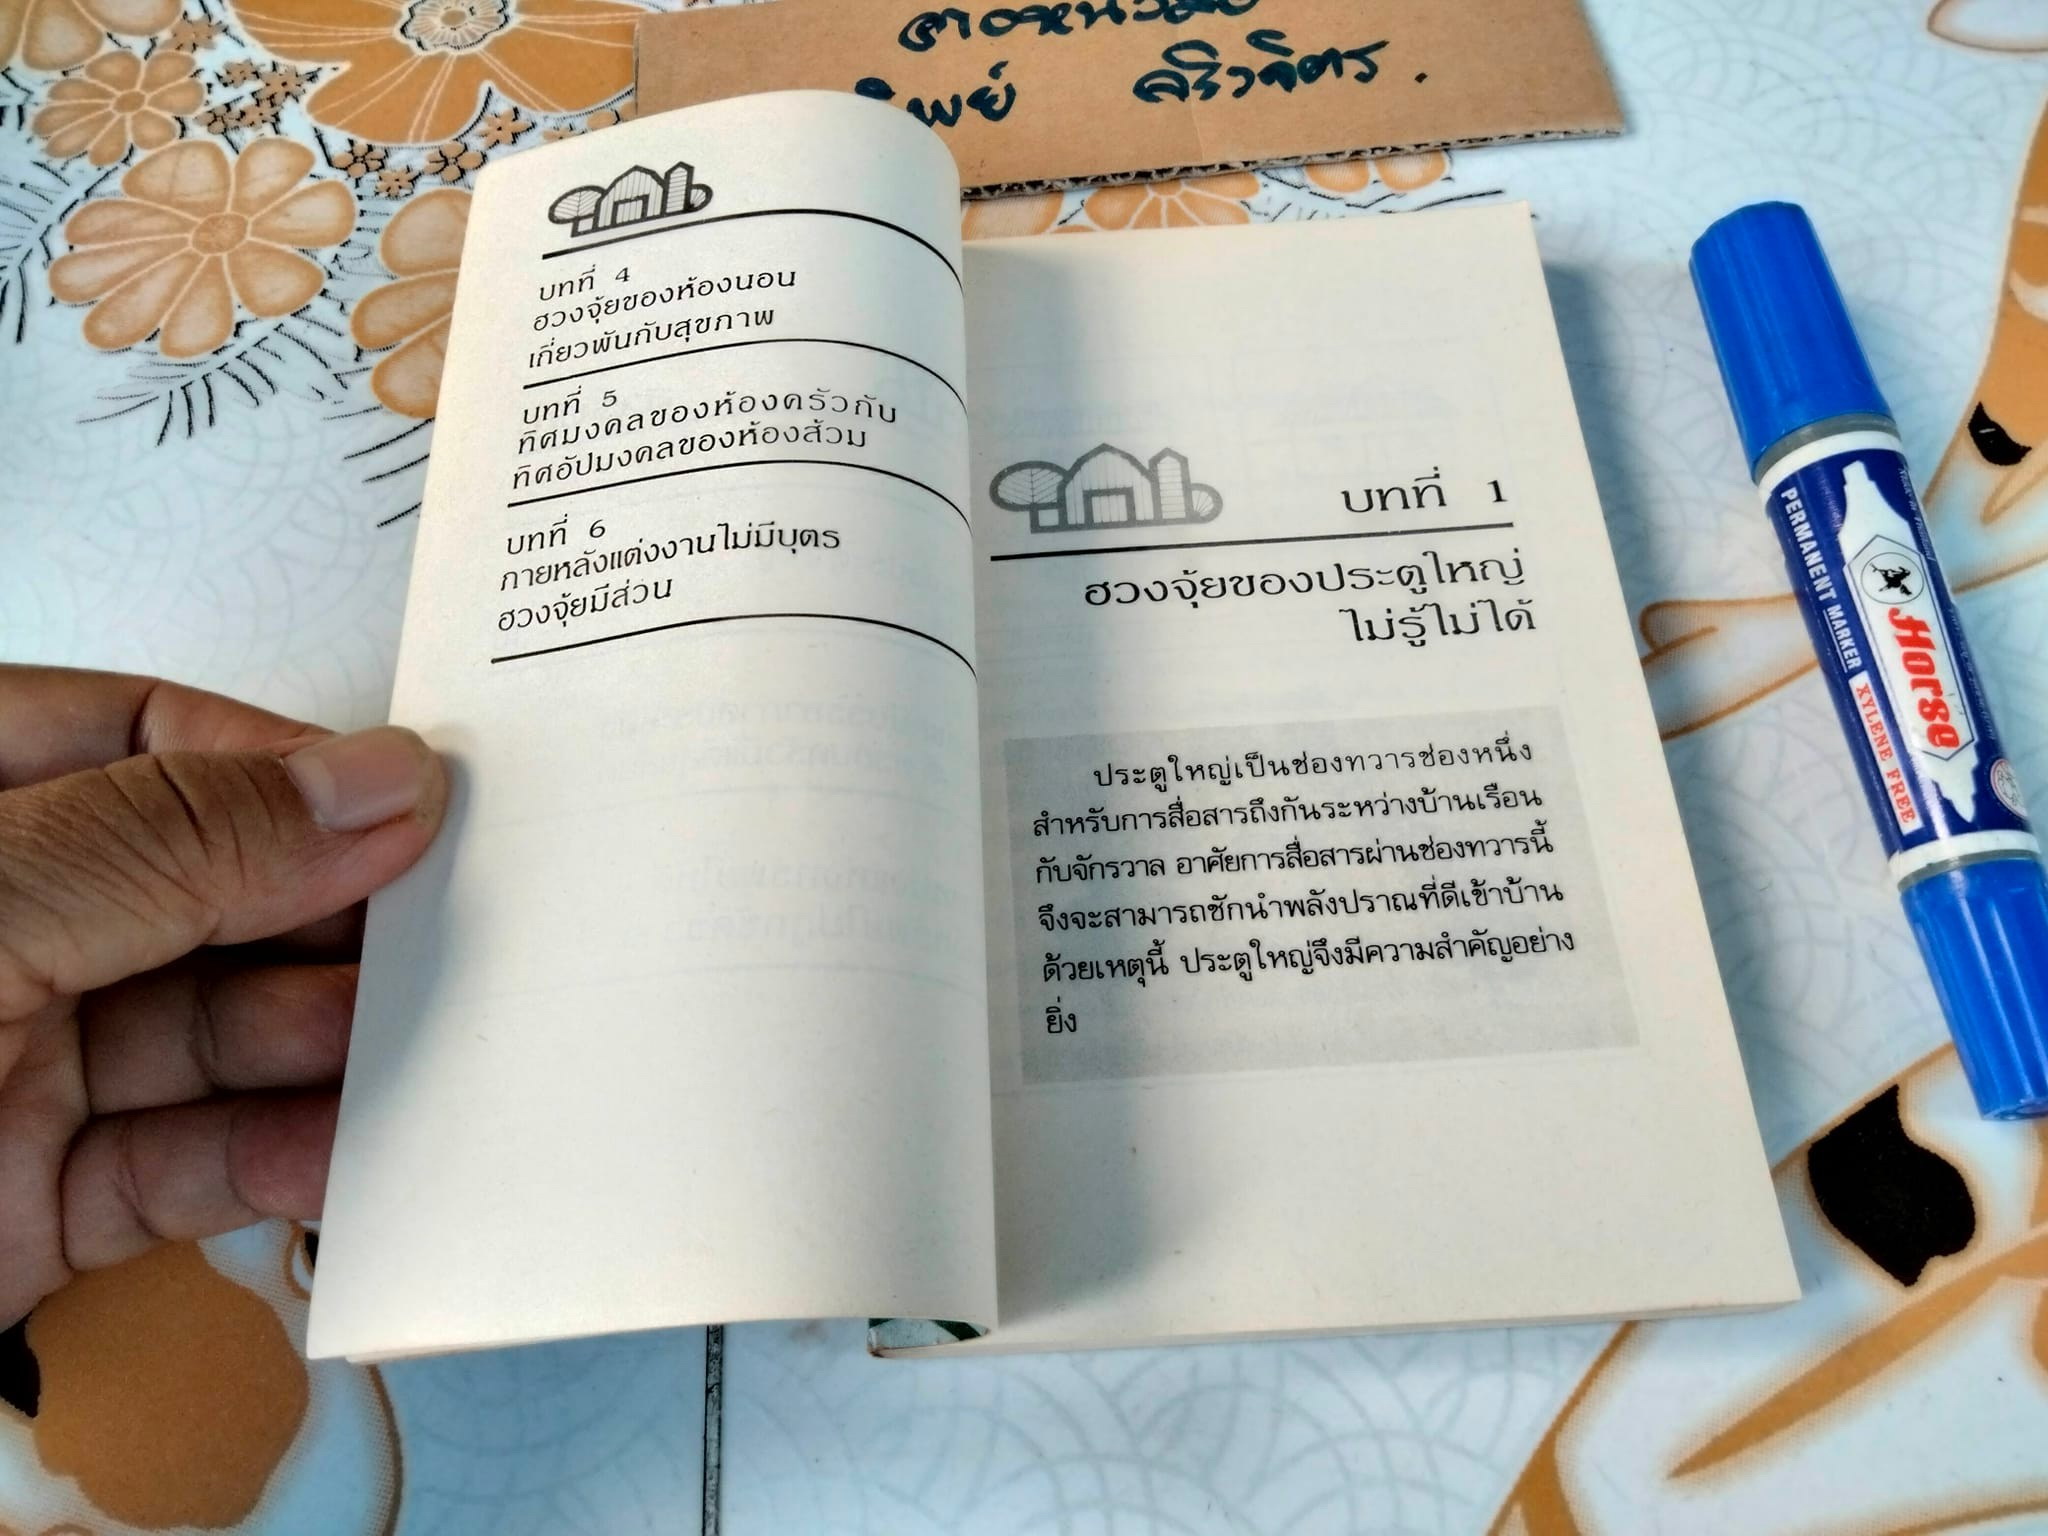 ศิริวจิตร.
บทที่ 4
ฮวงจุ้ยของห้องนอน
เกี่ยวพันกับสุขภาพ
บทที่ 5
ทิศมงคลของห้องครัวกับ
ทิศอัปมงคลของห้องส้วม
บทที่ 6
ภายหลังแต่งงานไม่มีบุตร
ฮวงจุ้ยมีส่วน
บทที่ 1
ฮวงจุ้ยของประตูใหญ่
ไม่รู้ไม่ได้
ประตูใหญ่เป็นช่องทวารช่องหนึ่ง
สำหรับการสื่อสารถึงกันระหว่างบ้านเรือน
กับจักรวาล อาศัยการสื่อสารผ่านช่องทวารนี้
จึงจะสามารถชักนำพลังปราณที่ดีเข้าบ้าน
ด้วยเหตุนี้ ประตูใหญ่จึงมีความสำคัญอย่าง
ยิ่ง
PERMANENT MARKER XYLENE FREE
Horse